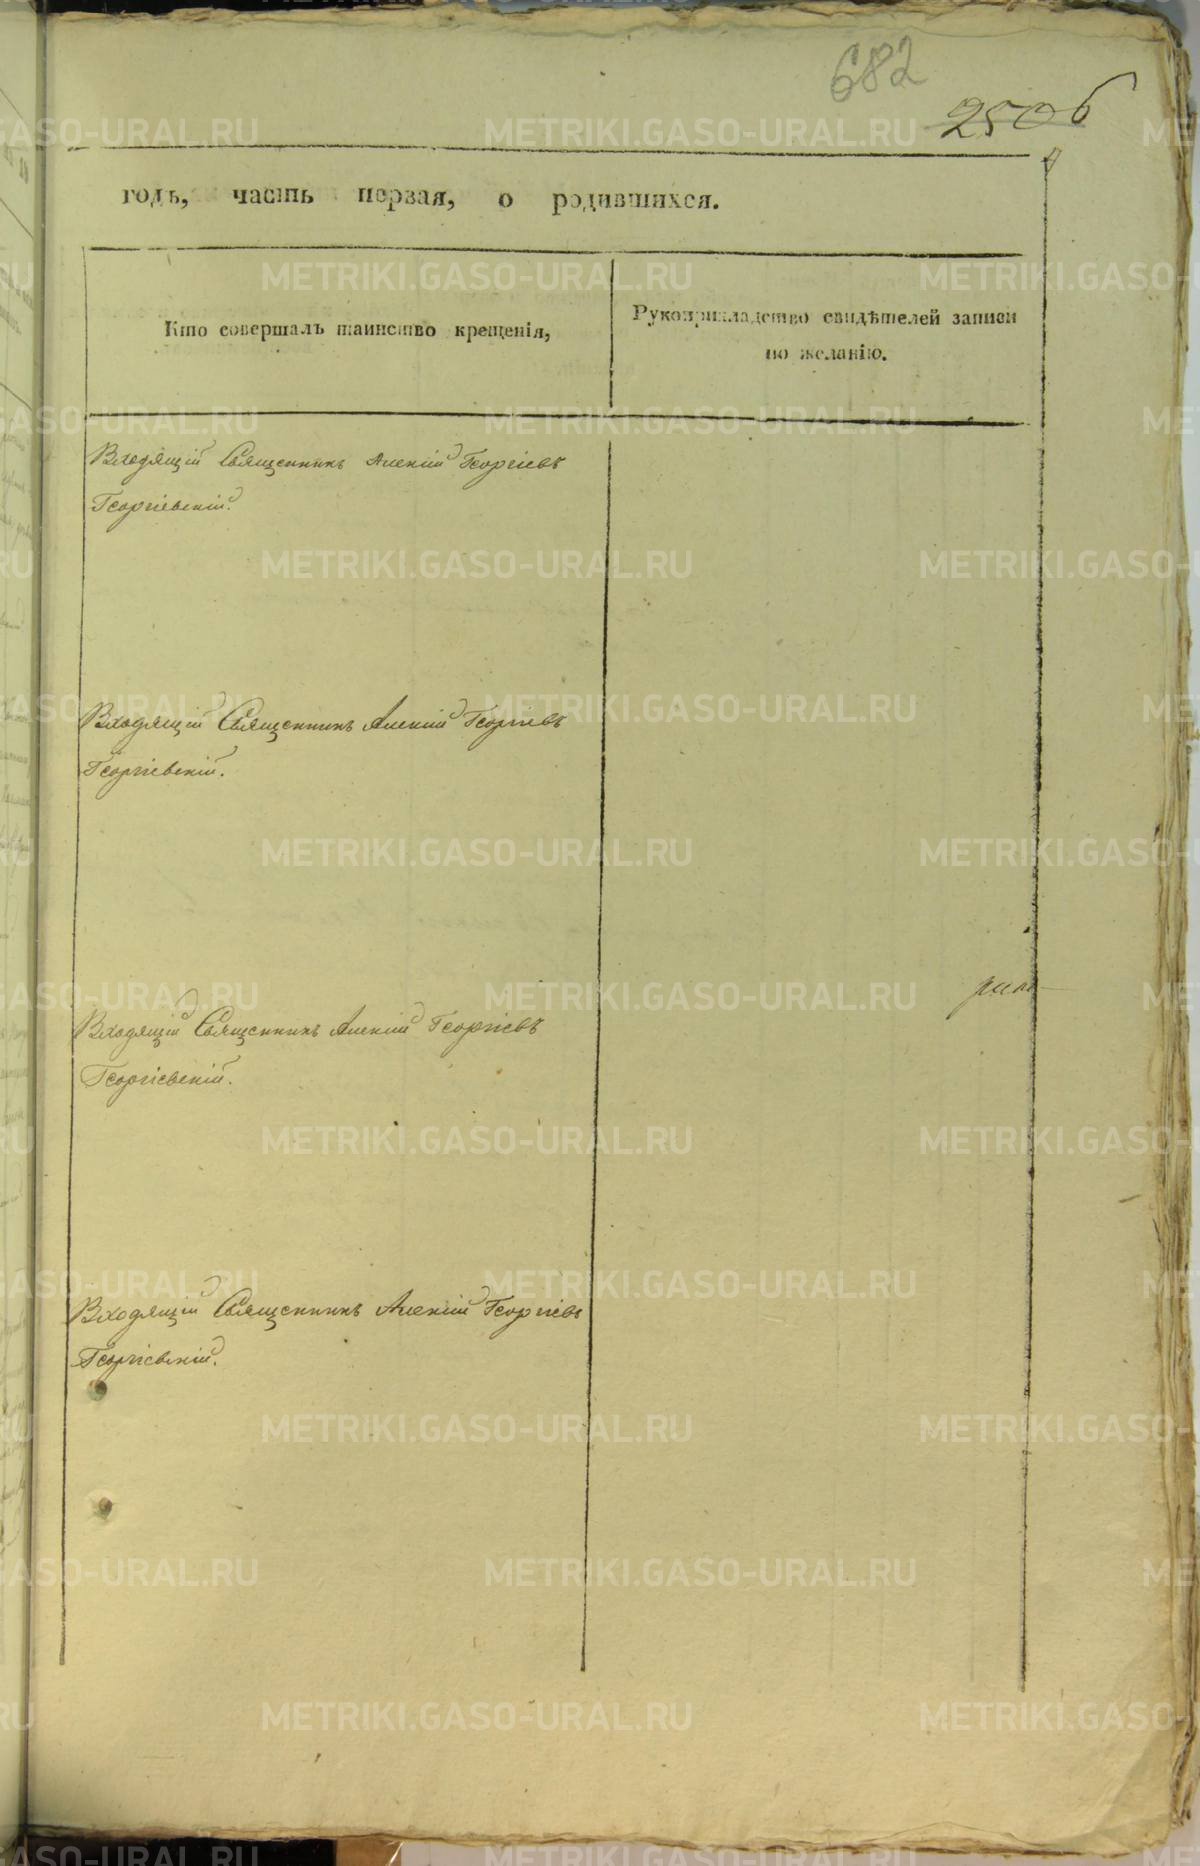 682
2506
годъ, часть первая, о родившихся.
Кто совершалъ таинство крещенія,
Рукоприкладство свидѣтелей записи
по желанію.
Входящій Священникъ Алексій Георгіевъ
Георгіевскій.
Входящій Священникъ Алексій Георгіевъ
Георгіевскій.
Входящій Священникъ Алексій Георгіевъ
Георгіевскій.
Входящій Священникъ Алексій Георгіевъ
Георгіевскій.
METRIKI.GASO-URAL.RU